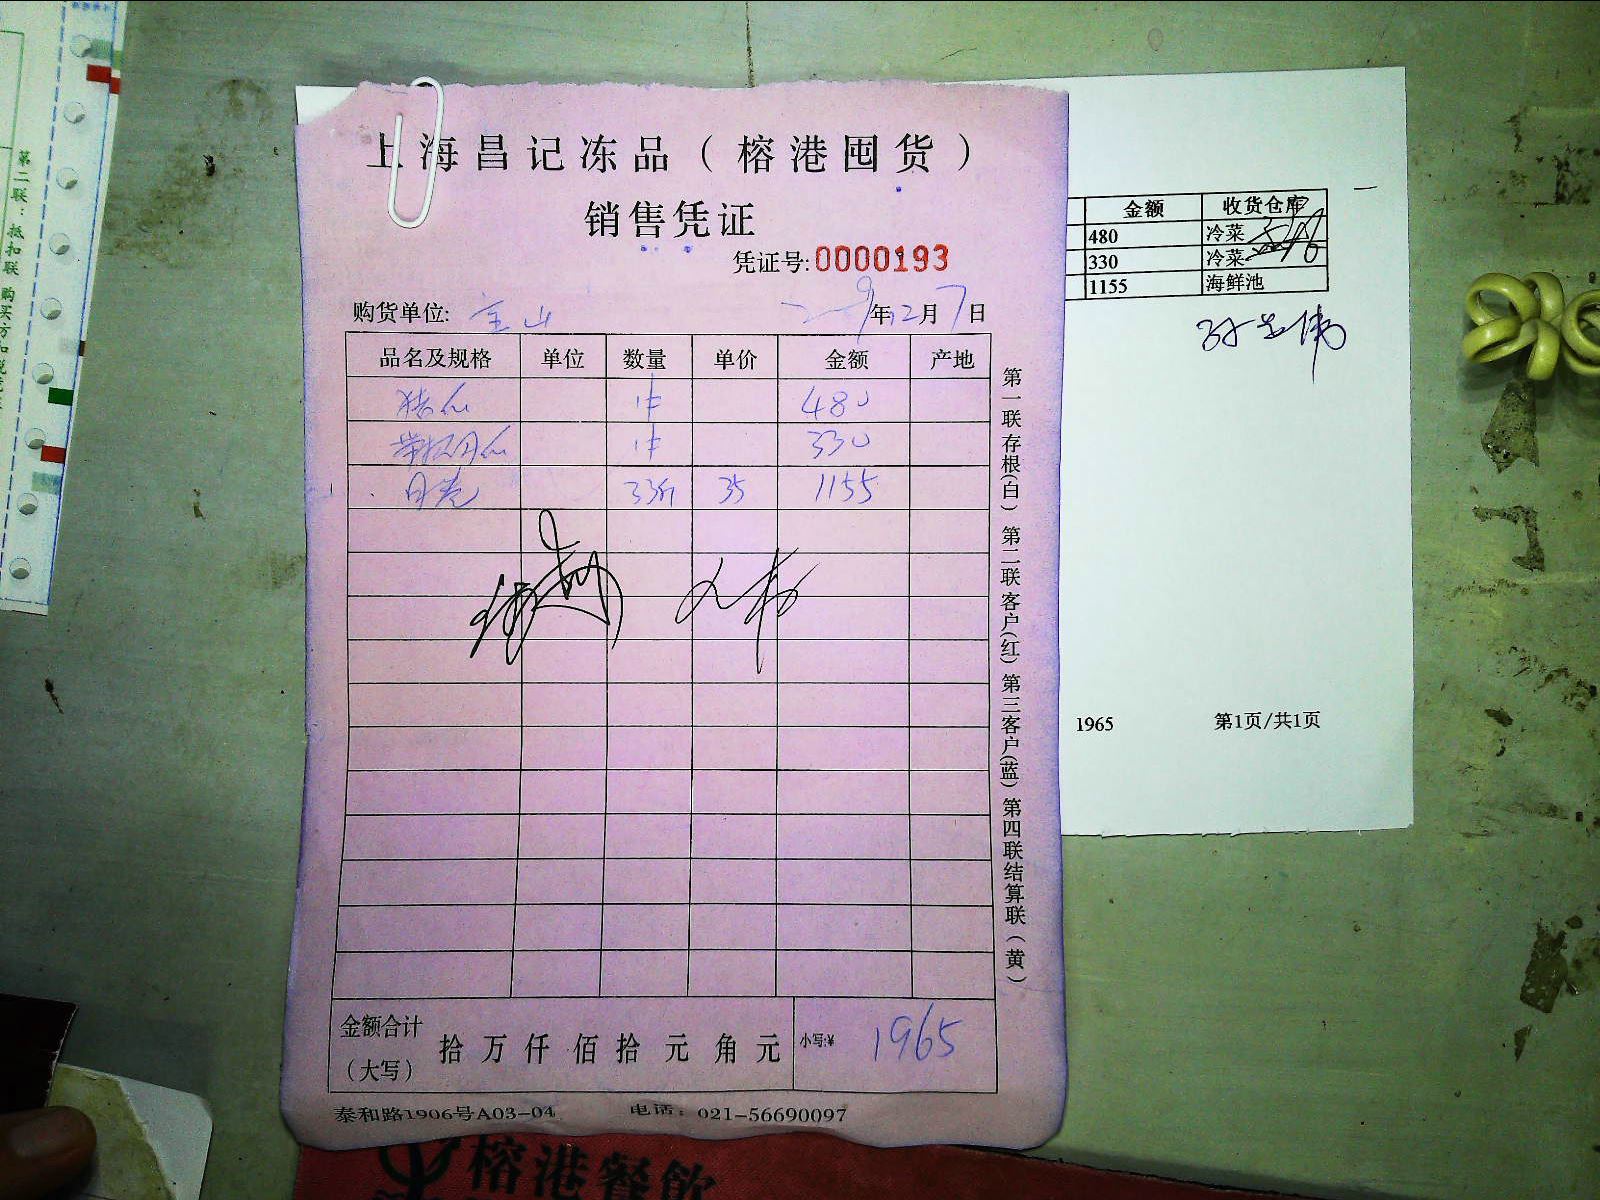 上海昌记冻品（榕港囤货）
销售凭证
凭证号:0000193
购货单位: 宝山 年12月7日
品名及规格 单位 数量 单价 金额 产地
1件 480
1件 330
33斤 35 1155
金额合计（大写） 拾 万 仟 佰 拾 元 角 元 小写:¥ 1965
泰和路1906号A03-04 电话：021-56690097
第一联存根(白) 第二联客户(红) 第三客户(蓝) 第四联结算联（黄）
金额 收货仓库
480 冷菜
330 冷菜
1155 海鲜池
1965 第1页/共1页
第二联：抵扣联 购买方扣税
榕港餐飲